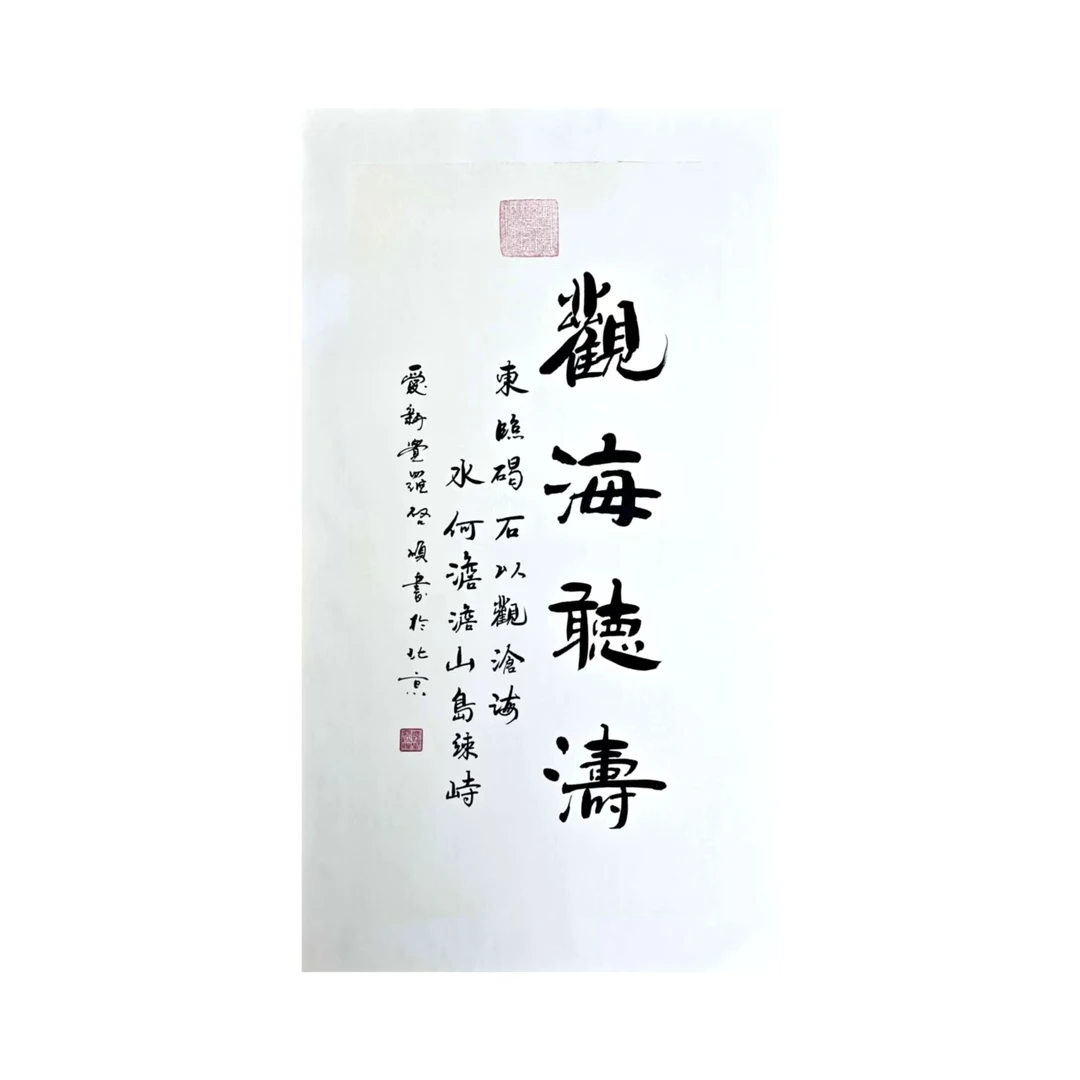 觀海聽濤
東臨碣石以觀滄海
水何澹澹山島竦峙
愛新覺羅啓頎書於北京